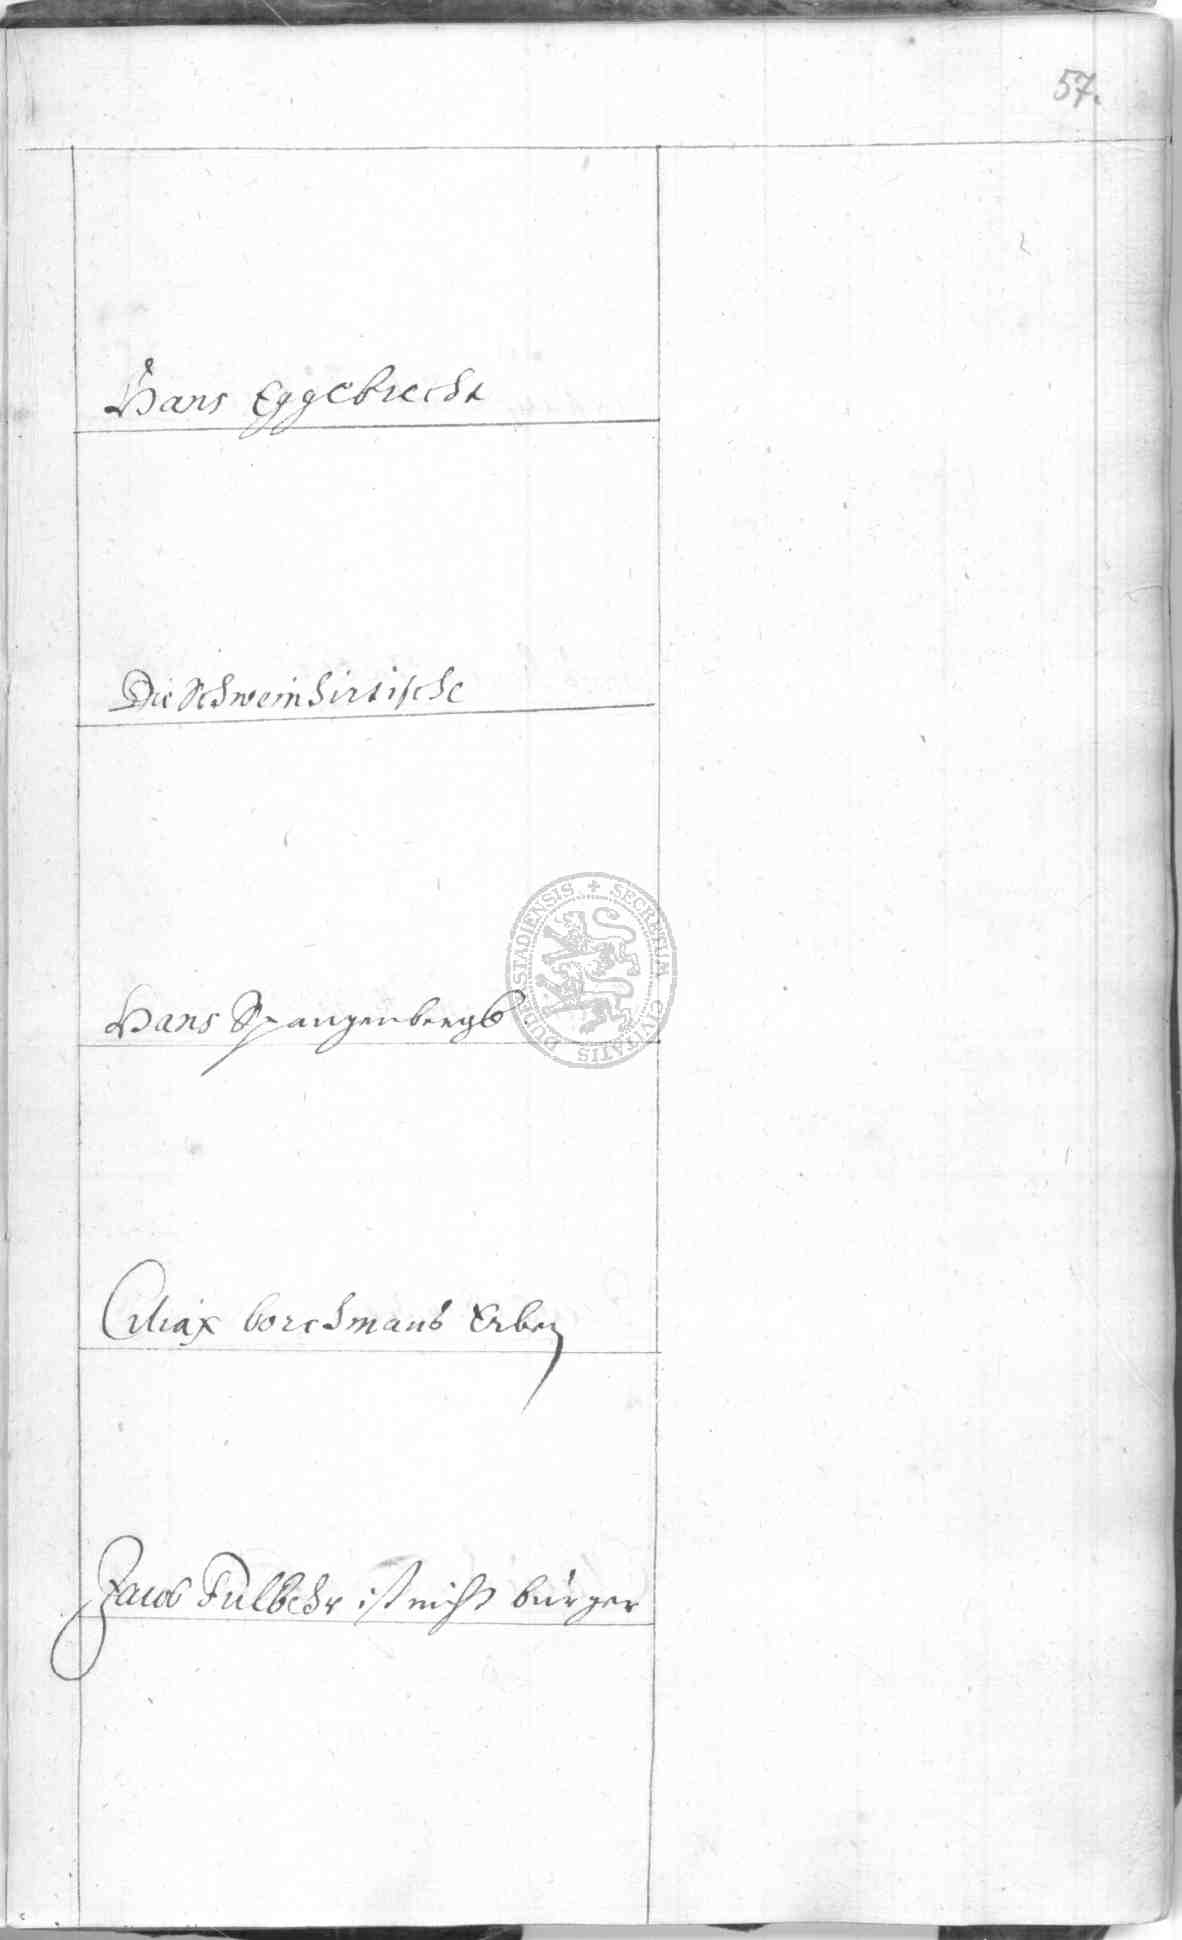 57.
Hans Eggebrecht
Die Schweinhirtische
Hans Spangenbergk
Ciliax borchmans Erben
Jacob Fulbehr ist nicht bürger
SECRETUM CIVITATIS DUDERSTADIENSIS